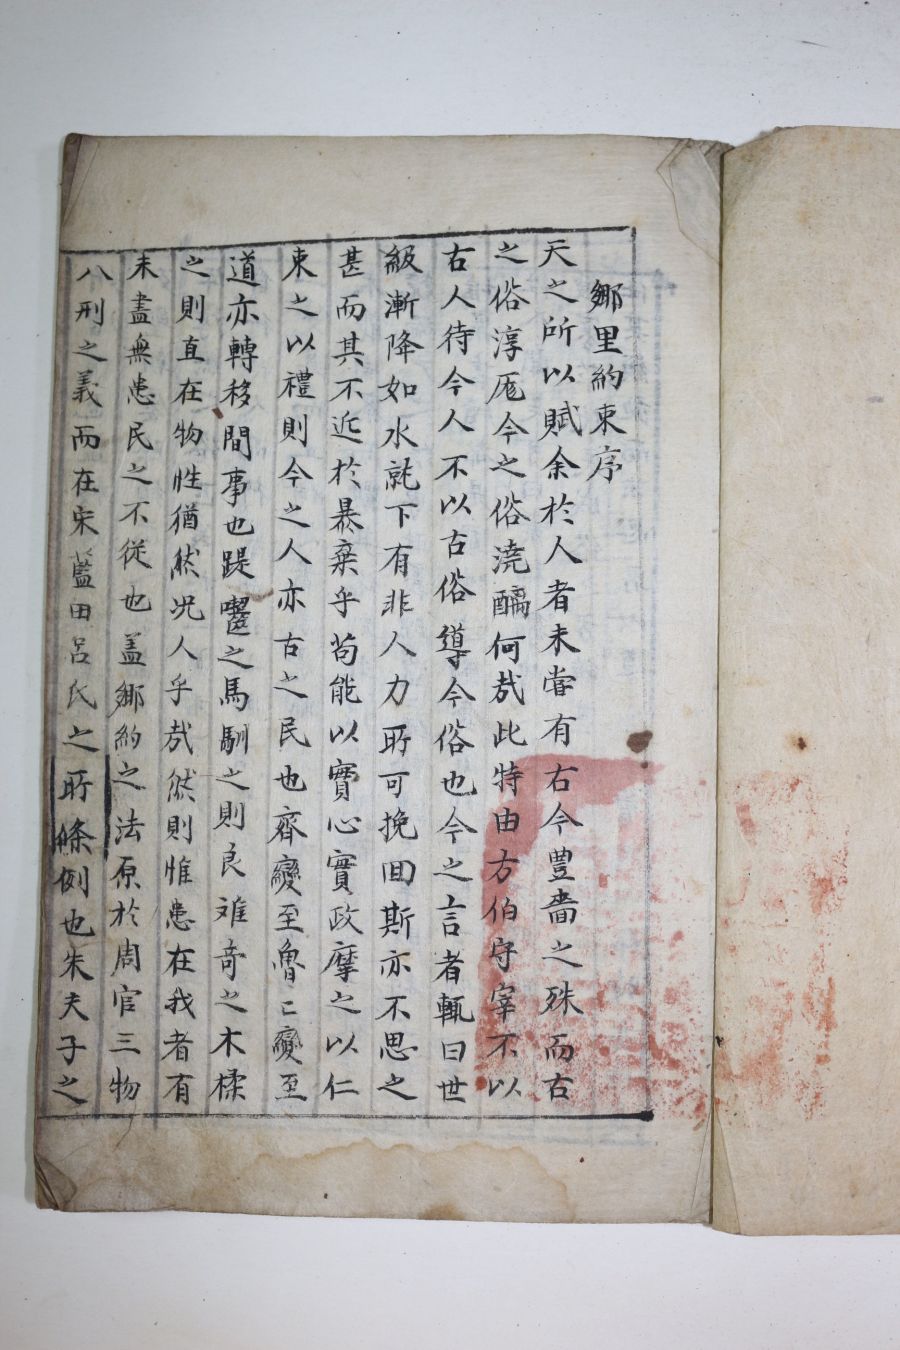 鄉里約束序
天之所以賦余於人者未嘗有古今豊嗇之殊而古
之俗淳厖今之俗澆醨何㢤此特由方伯守宰不以
古人待今人不以古俗導今俗也今之言者輒曰世
級漸降如水就下有非人力所可挽回斯亦不思之
甚而其不近於暴棄乎苟能以實心實政摩之以仁
束之以禮則今之人亦古之民也齊變至魯〻變至
道亦轉移間事也踶囓之馬馴之則良难奇之木楺
之則直在物性猶然况人乎㢤然則惟患在我者有
未盡無患民之不從也盖鄉約之法原於周官三物
八刑之義而在宋藍田呂氏之所條例也朱夫子之